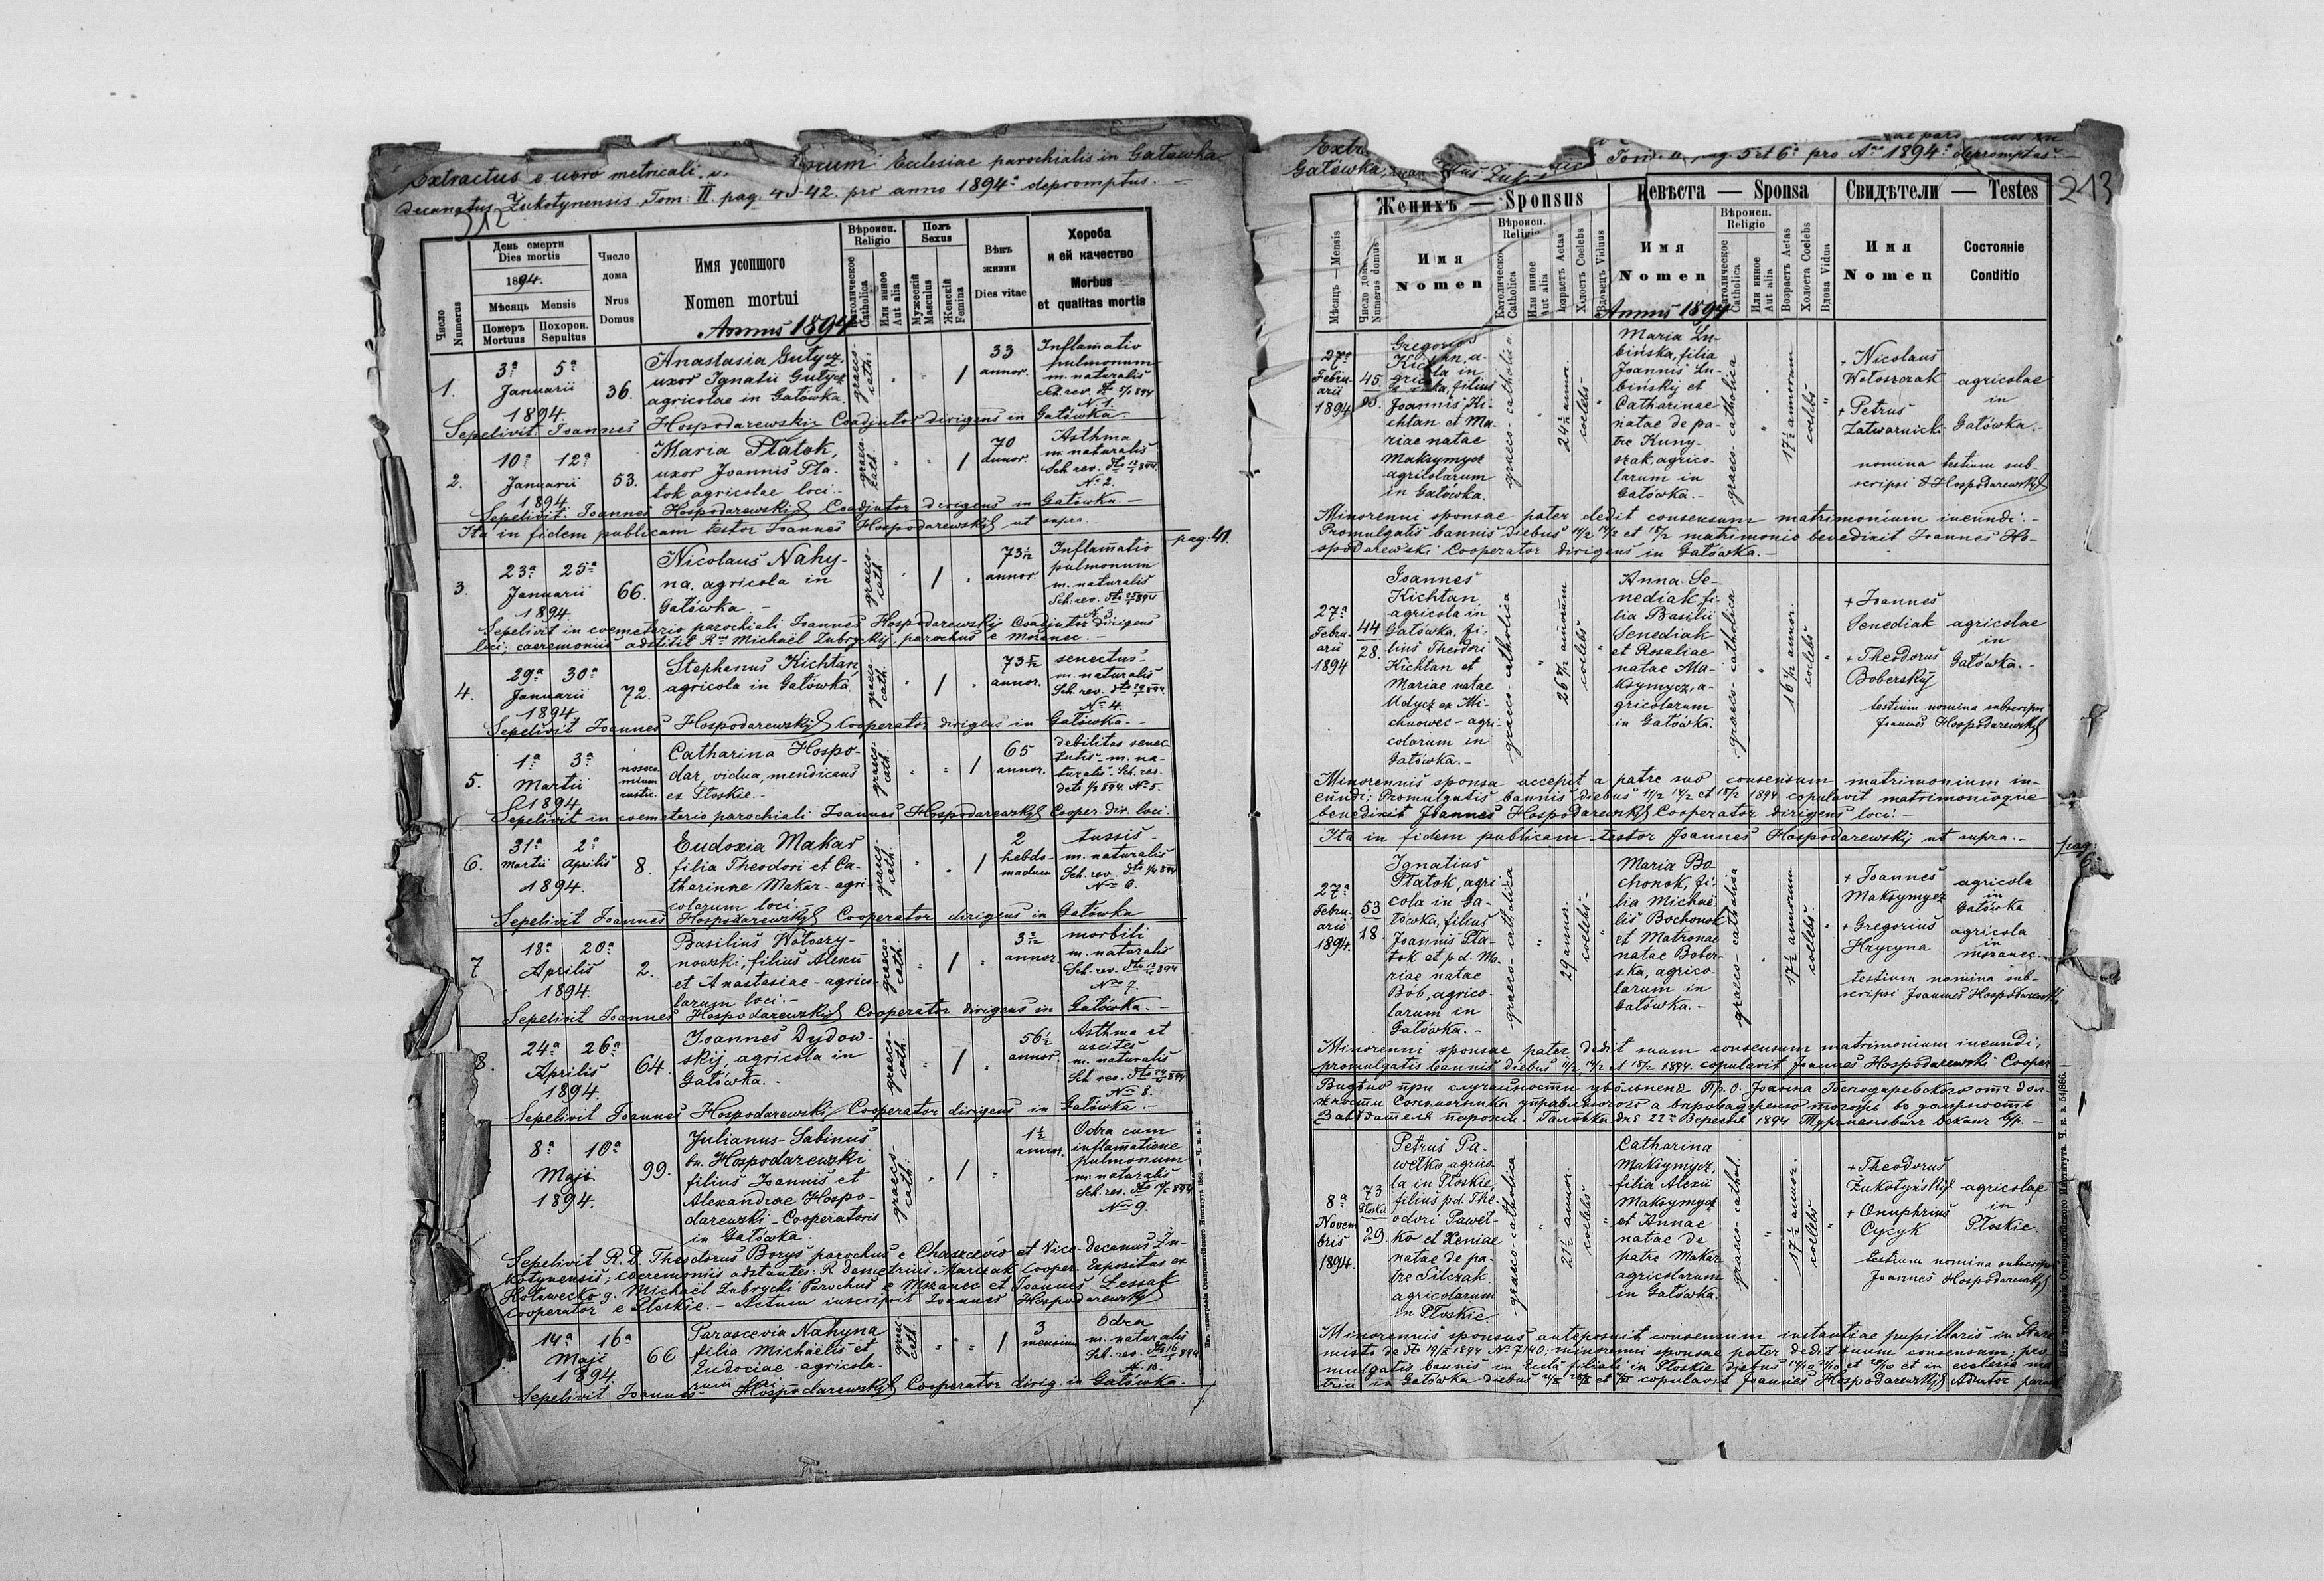 Extractus e libro metricali
Ecclesiae parochialis in Gałówka
decanatus Żukotynensis Tom: II. pag. 42. pro anno 1894º depromptus. —
212
Число
Numerus
День смерти
Dies mortis
1894.
Мѣсяць Mensis
Померъ
Mortuus
Похорон.
Sepultus
Число
дома
Nrus
Domus
Имя усопшого
Nomen mortui
Annus 1894
Вѣроисп.
Religio
Католическое
Catholica
Или инное
Aut alia
Полъ
Sexus
Мужескій
Masculus
Женскій
Femina
Вѣкъ
жизни
Dies vitae
Хороба
и ей качество
Morbus
et qualitas mortis
1. 3ª 5ª
Januarii
1894.
36.
Anastasia Gutycz,
uxor Ignatii Gutycz
agricolae in Gałówka.
graeco-
cath.
1
33
annor.
Inflam̄atio
pulmonum
m. naturalis
Sch. rev. 894
Nº 1.
Sepelivit Joannes Hospodarewskij Coadjutor dirigens in Gałówka
2. 10ª 12ª
Januarii
1894.
53.
Maria Płatok,
uxor Joannis Pła-
tok agricolae loci.-
graeco-
cath.
1
70
annor.
Asthma
m. naturalis
Sch. rev. 894
Nº 2.
Sepelivit Joannes Hospodarewskij Coadjutor dirigens in Gałówka.—
Ita in fidem publicam testor Joannes Hospodarewskij ut supra.
pag: 41.
3. 23ª 25ª
Januarii
1894.
66.
Nicolaus Nahy-
na, agricola in
Gałówka.—
graeco-
cath.
1
73
annor.
Inflam̄atio
pulmonum
m. naturalis
Sch. rev. 894
Nº 3.
Sepelivit in coemeterio parochiali Joannes Hospodarewskij Coadjutor dirigens
loci; caeremoniis adstitit Michaël Zubryckij, parochus e Mszanec.—
4. 29ª 30ª
Januarii
1894.
72.
Stephanus Kichtan,
agricola in Gałówka
graeco-
cath.
1
73
annor.
senectus-
m. naturalis
Sch. rev. 894
Nº 4.
Sepelivit Joannes Hospodarewskij Cooperator dirigens in Gałówka.-
5. 1ª 3ª
Martii
1894.
nosoco
mium
rustic.
Catharina Hospo-
dar, vidua, mendicans
ex Płoskie.-
graeco-
cath.
1
65
annor.
debilitas senec-
tutis- m. na-
turalis. Sch. rev.
894. Nº 5.
Sepelivit in coemeterio parochiali Joannes Hospodarewskij Cooper. dir. loci.
6. 31ª 2ª
Martii Aprilis
1894.
8.
Eudoxia Makar
filia Theodori et Ca-
tharinae Makar - agri-
colarum loci.-
graeco-
cath.
1
2
hebdo-
madum
tussis -
m. naturalis
Sch. rev. 894
Nº 6.
Sepelivit Joannes Hospodarewskij Cooperator dirigens in Gałówka
7 18ª 20ª
Aprilis
1894.
2.
Basilius Wołoszy-
nowski, filius Alexii
et Anastasiae - agrico-
larum loci.-
graeco
cath.
1
3
annor
morbili
m. naturalis
Sch. rev. 894
Nº 7.
Sepelivit Joannes Hospodarewskij Cooperator dirigens in Gałówka.—
8. 24ª 26ª
Aprilis
1894.
64.
Joannes Dydow-
skij, agricola in
Gałówka.-
graeco-
cath.
1
56½
annor.
Asthma et
ascites
m. naturalis
Sch. rev. 894
Nº 8.
Sepelivit Joannes Hospodarewskij Cooperator dirigens in Gałówka.—
8ª 10ª
Maji
1894.
99.
Julianus-Sabinus
bn. Hospodarewski
filius Joannis et
Alexandrae Hospo-
darewski - Cooperatoris
in Gałówka.
graeco-
cath.
1
1½
annor.
Odra cum
inflam̄atione
pulmonum
m. naturalis
Sch. rev. 894
Nº 9.
Sepelivit R. D. Theodorus Borys parochus e Chaszczów et Vice-decanus Żu-
kotynensis; caeremoniis adstantes: R. Demetrius Marczak Cooper. Expositus ex
Hołowecko g. Michaël Zubrycki Parochus e Mszanec et Joannes Lessak
cooperator e Płoskie. - Actum inscripsit Joannes Hospodarewskij
14ª 16ª
Maji
1894.
66
Parascevia Nahyna
filia Michaëlis et
Eudociae agricola-
rum loci
graec
cath.
1
3
mensium
Odra
m. naturalis
Sch. rev. 894
Nº 10.
Sepelivit Joannes Hospodarewskij Cooperator dirig. in Gałówka.
Extr
Gałówka, Tom. II, pag. 5 et 6ª pro Aº 1894º depromptus.—
213
Женихъ — Sponsus
Невѣста — Sponsa
Свидѣтели — Testes
Мѣсяць — Mensis
Число дома
Numerus domus
Имя
Nomen
Вѣроисп.
Religio
Католическое
Catholica
Или инное
Aut alia
Возрастъ Aetas
Холостъ Coelebs
Вдовецъ Viduus
Имя
Nomen
Annus 1894
Вѣроисп.
Religio
Католическое
Catholica
Или инное
Aut alia
Возрастъ Aetas
Холоста Coelebs
Вдова Vidua
Имя
Nomen
Состояніе
Conditio
27ª
Febru-
arii
1894
45.
90.
Gregorius
Kichtan, a-
gricola in
Gałówka, filius
Joannis Ki-
chtan et Ma-
riae natae
Maksymycz
agricolarum
in Gałówka.
graeco-catholica.
24½ annor.
coelebs-
Maria Łu-
bińska, filia
Joannis Łu-
bińskij et
Catharinae
natae de pa-
tre Kuny-
szak, agrico-
larum in
Gałówka.-
graeco-catholica
17½ annorum
coelebs
+ Nicolaus
Wołoszczak
+ Petrus
Zatwarnicki
agricolae
in
Gałówka.-
nomina testium sub-
scripsi JHospodarewskij
Minorenni sponsae pater dedit consensum matrimonium ineundi.—
Promulgatis bannis diebus 11/2 14/2 et 18/2 matrimonio benedixit Joannes Ho-
spodarewski Cooperator dirigens in Gałówka.—
27ª
Febru-
arii
1894
44
28.
Joannes
Kichtan
agricola in
Gałówka, fi-
lius Theodori
Kichtan et
Mariae natae
Udycz ex Mi-
chnowec - agri-
colarum in
Gałówka.-
graeco-catholica
26 annorum
coelebs
Anna Se-
nediak fi-
lia Basilii
Senediak
et Rosaliae
natae Ma-
ksymycz, a-
gricolarum
in Gałówka.
graeco-catholica
16 annor.
coelebs
+ Joannes
Senediak
+ Theodorus
Boberskij
agricolae
in
Gałówka.-
testium nomina subscripsi
Joannes Hospodarewskij
Minorennis sponsa accepit a patre suo consensum matrimonium in-
eundi; Promulgatis bannis diebus 11/2 14/2 et 18/2 1894 copulavit matrimonioque
benedixit Joannes Hospodarewskij Cooperator dirigens loci.-
Ita in fidem publicam testor Joannes Hospodarewskij ut supra.-
pag:
6.
27ª
Febru-
arii
1894.
53
18.
Ignatius
Płatok, agri
cola in Ga-
łówka, filius
Joannis Pła-
tok et pd. Ma-
riae natae
Bob, agrico-
larum in
Gałówka.-
graeco-catholica
29 annor.
coelebs
Maria Bo-
chonok, fi-
lia Michaë-
lis Bochonok
et Matronae
natae Bober-
ska, agrico-
larum in
Gałówka.-
graeco-catholica
17½ annorum
coelebs
+ Joannes
Maksymycz
agricola
in
Gałówka
+ Gregorius
Hrycyna
agricola
in
Mszanec.
testium nomina sub-
scripsi Joannes Hospodarewskij
Minorenni sponsae pater dedit suum consensum matrimonium ineundi,
promulgatis bannis diebus 11/2, 14/2 et 18/2 1894. copulavit Joannes Hospodarewski Cooper
Видѣно при случайности увольненя Пр. О. Іоанна Господаревского отъ дол-
жности Сотрудника управляючого а впровадженю тогожь во должность
Завѣдателя парохіи. Галôвка дня 22º Вересня 1894 Деканъ
8ª
Novem
bris
1894.
73
Płoskie
29.
Petrus Pa-
wełko, agrico-
la in Płoskie,
filius pd. The-
odori Paweł-
ko et Xeniae
natae de pa-
tre Silczak.
agricolarum
in Płoskie.
graeco-catholica
21½ annor.
coelebs
Catharina
Maksymycz,
filia Alexii
Maksymycz
et Annae
natae de
patre Makar
agricolarum
in Gałówka.
graeco-cathol.
17½ annor.
coelebs
+ Theodorus
Żukotyńskij
+ Onuphrius
Cycyk
agricolae
in
Płoskie.
testium nomina subscripsi
Joannes Hospodarewskij
Minorennis sponsus anteposuit consensum instantiae pupillaris in Stare
miasto de dto 1894 Nº 7140, minorenni sponsae pater dedit suum consensum; pro-
mulgatis bannis in Eccla filiali in Płoskie diebus 14/10 21/10 et 28/10 et in ecclesia ma
trici in Gałówka diebus et copulavit Joannes Hospodarewskij Adm̄tor paroch
Изъ типографіи Ставропигійского Института 1889. — Ч. к. в. 2.
Изъ типографіи Ставропигійского Института. Ч. к. в. 54|886.